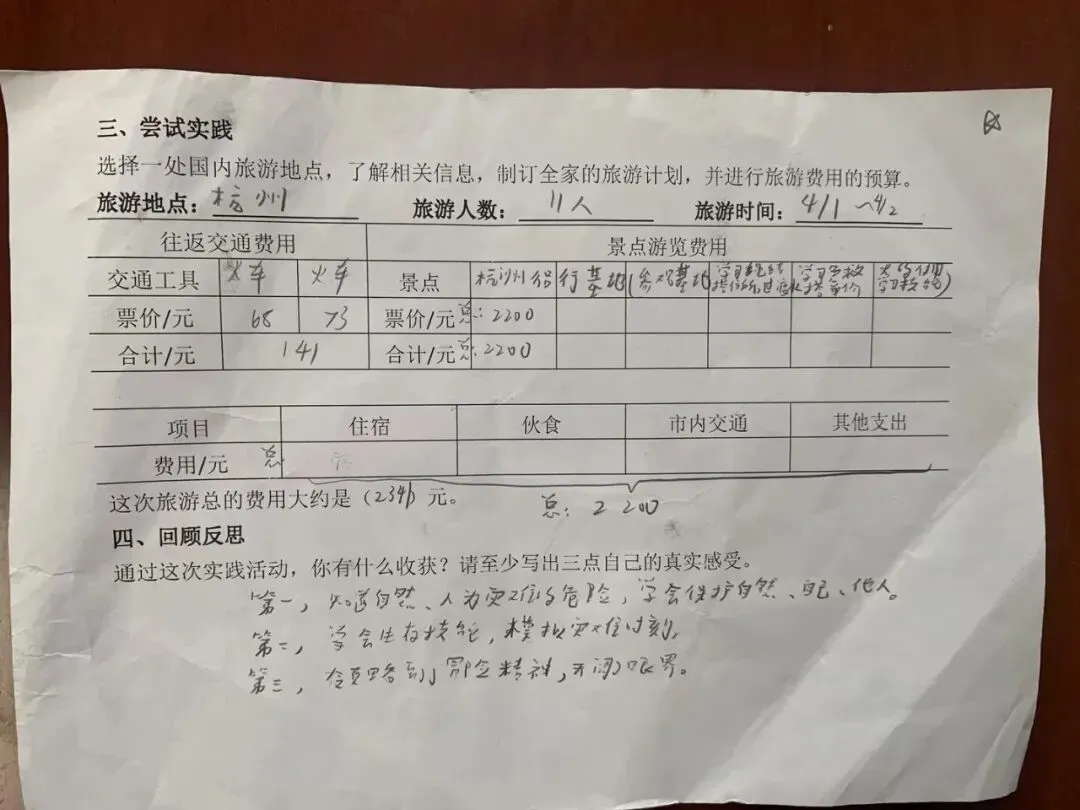 三、尝试实践
选择一处国内旅游地点，了解相关信息，制订全家的旅游计划，并进行旅游费用的预算。
旅游地点：杭州 旅游人数：11人 旅游时间：4/1~4/2
往返交通费用 景点游览费用
交通工具 火车 火车 景点 杭州 行基地(参观基地 学习 学习 学习
票价/元 68 73 票价/元 总：2200
合计/元 141 合计/元 总：2200
项目 住宿 伙食 市内交通 其他支出
费用/元 总
这次旅游总的费用大约是（2341）元。 总：2200
四、回顾反思
通过这次实践活动，你有什么收获？请至少写出三点自己的真实感受。
第一，知道自然、人为灾难的危险，学会保护自然、自己、他人。
第二，学会生存技能，模拟灾难时刻。
第三，领略到了冒险精神，开阔眼界。